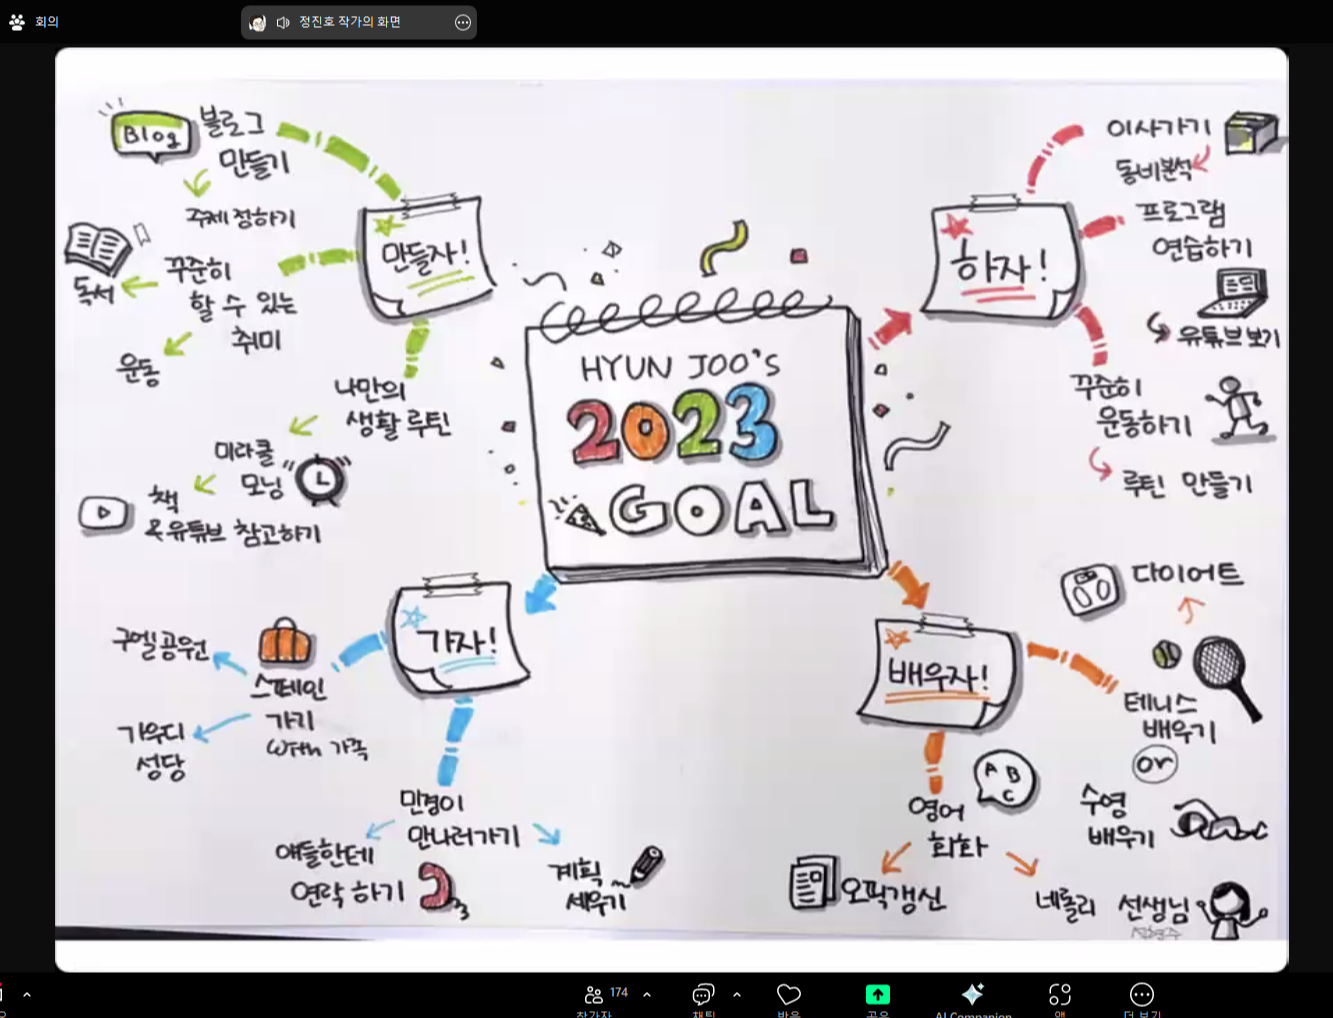 회의
정진호 작가의 화면
Blog
블로그
만들기
주제 정하기
만들자!
꾸준히
할 수 있는
취미
독서
운동
나만의
생활 루틴
미라클
모닝
책
유튜브 참고하기
HYUN JOO'S
2023
GOAL
하자!
이사가기
동네분석
프로그램
연습하기
유튜브 보기
꾸준히
운동하기
루틴 만들기
가자!
스페인
가기
with 가족
구엘공원
가우디
성당
민경이
만나러가기
얘들한테
연락 하기
계획
세우기
배우자!
다이어트
테니스
배우기
or
수영
배우기
A B
C
영어
회화
오픽갱신
선생님
174
참가자
채팅
반응
공유
AI Companion
앱
더 보기